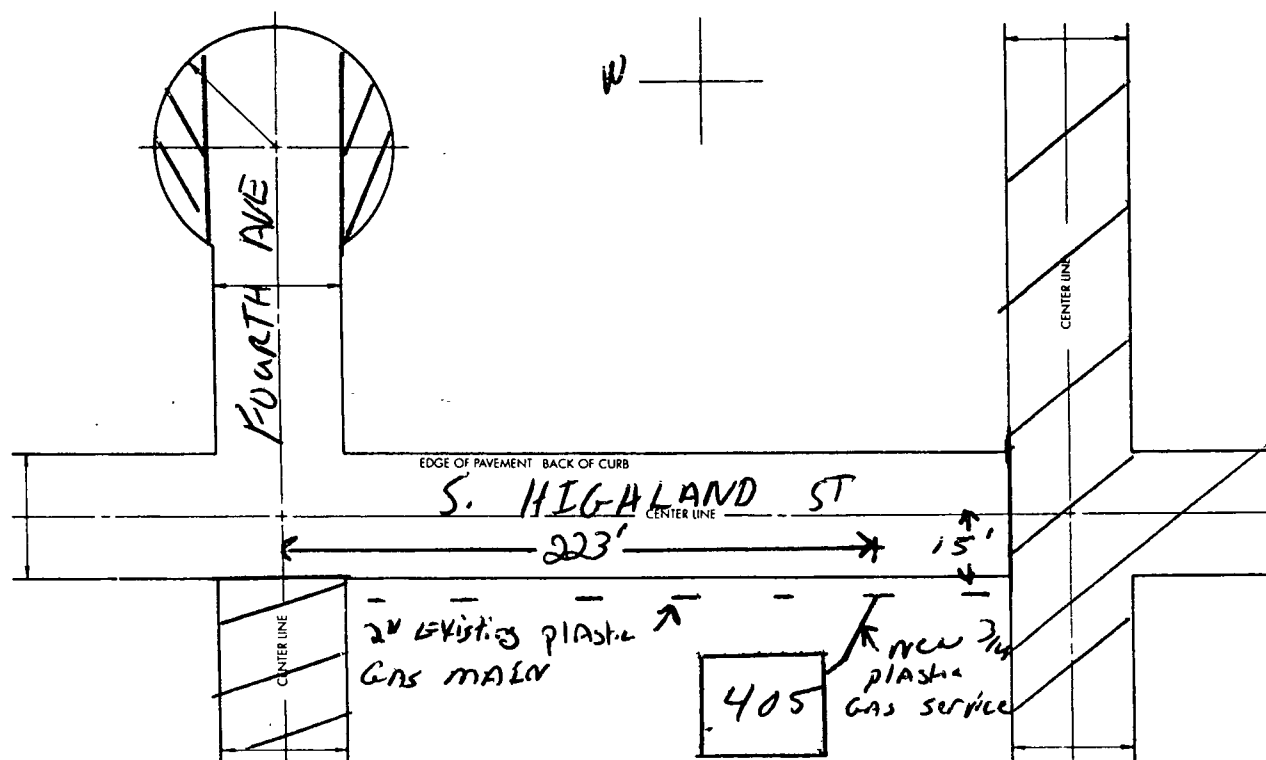 W
FOURTH AVE
CENTER LINE
EDGE OF PAVEMENT BACK OF CURB
S. HIGHLAND ST
CENTER LINE
223'
15'
CENTER LINE
2" Existing plastic
GAS MAIN
405
New 3/4
plastic
GAS Service